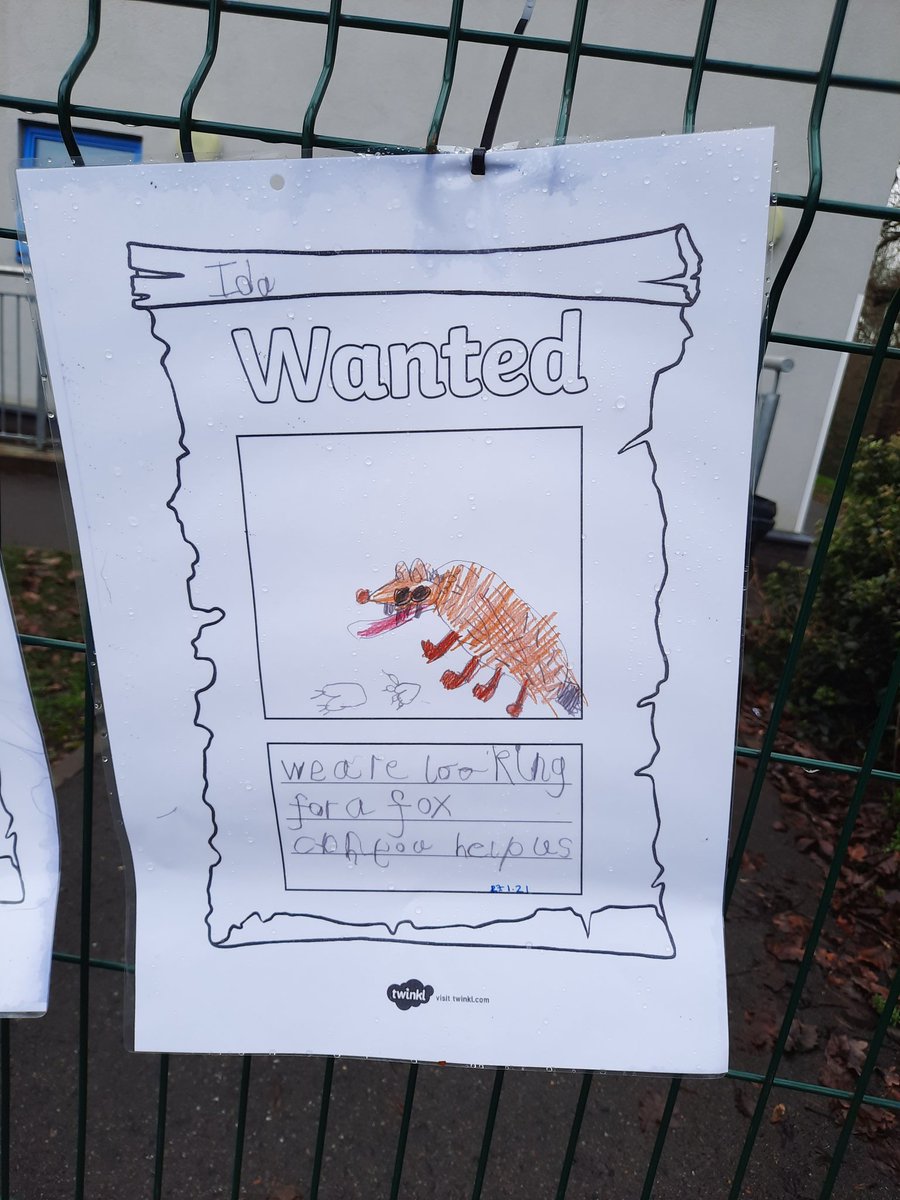 Ida
Wanted
we are looking
for a fox
can you help us
27.1.21
twinkl visit twinkl.com